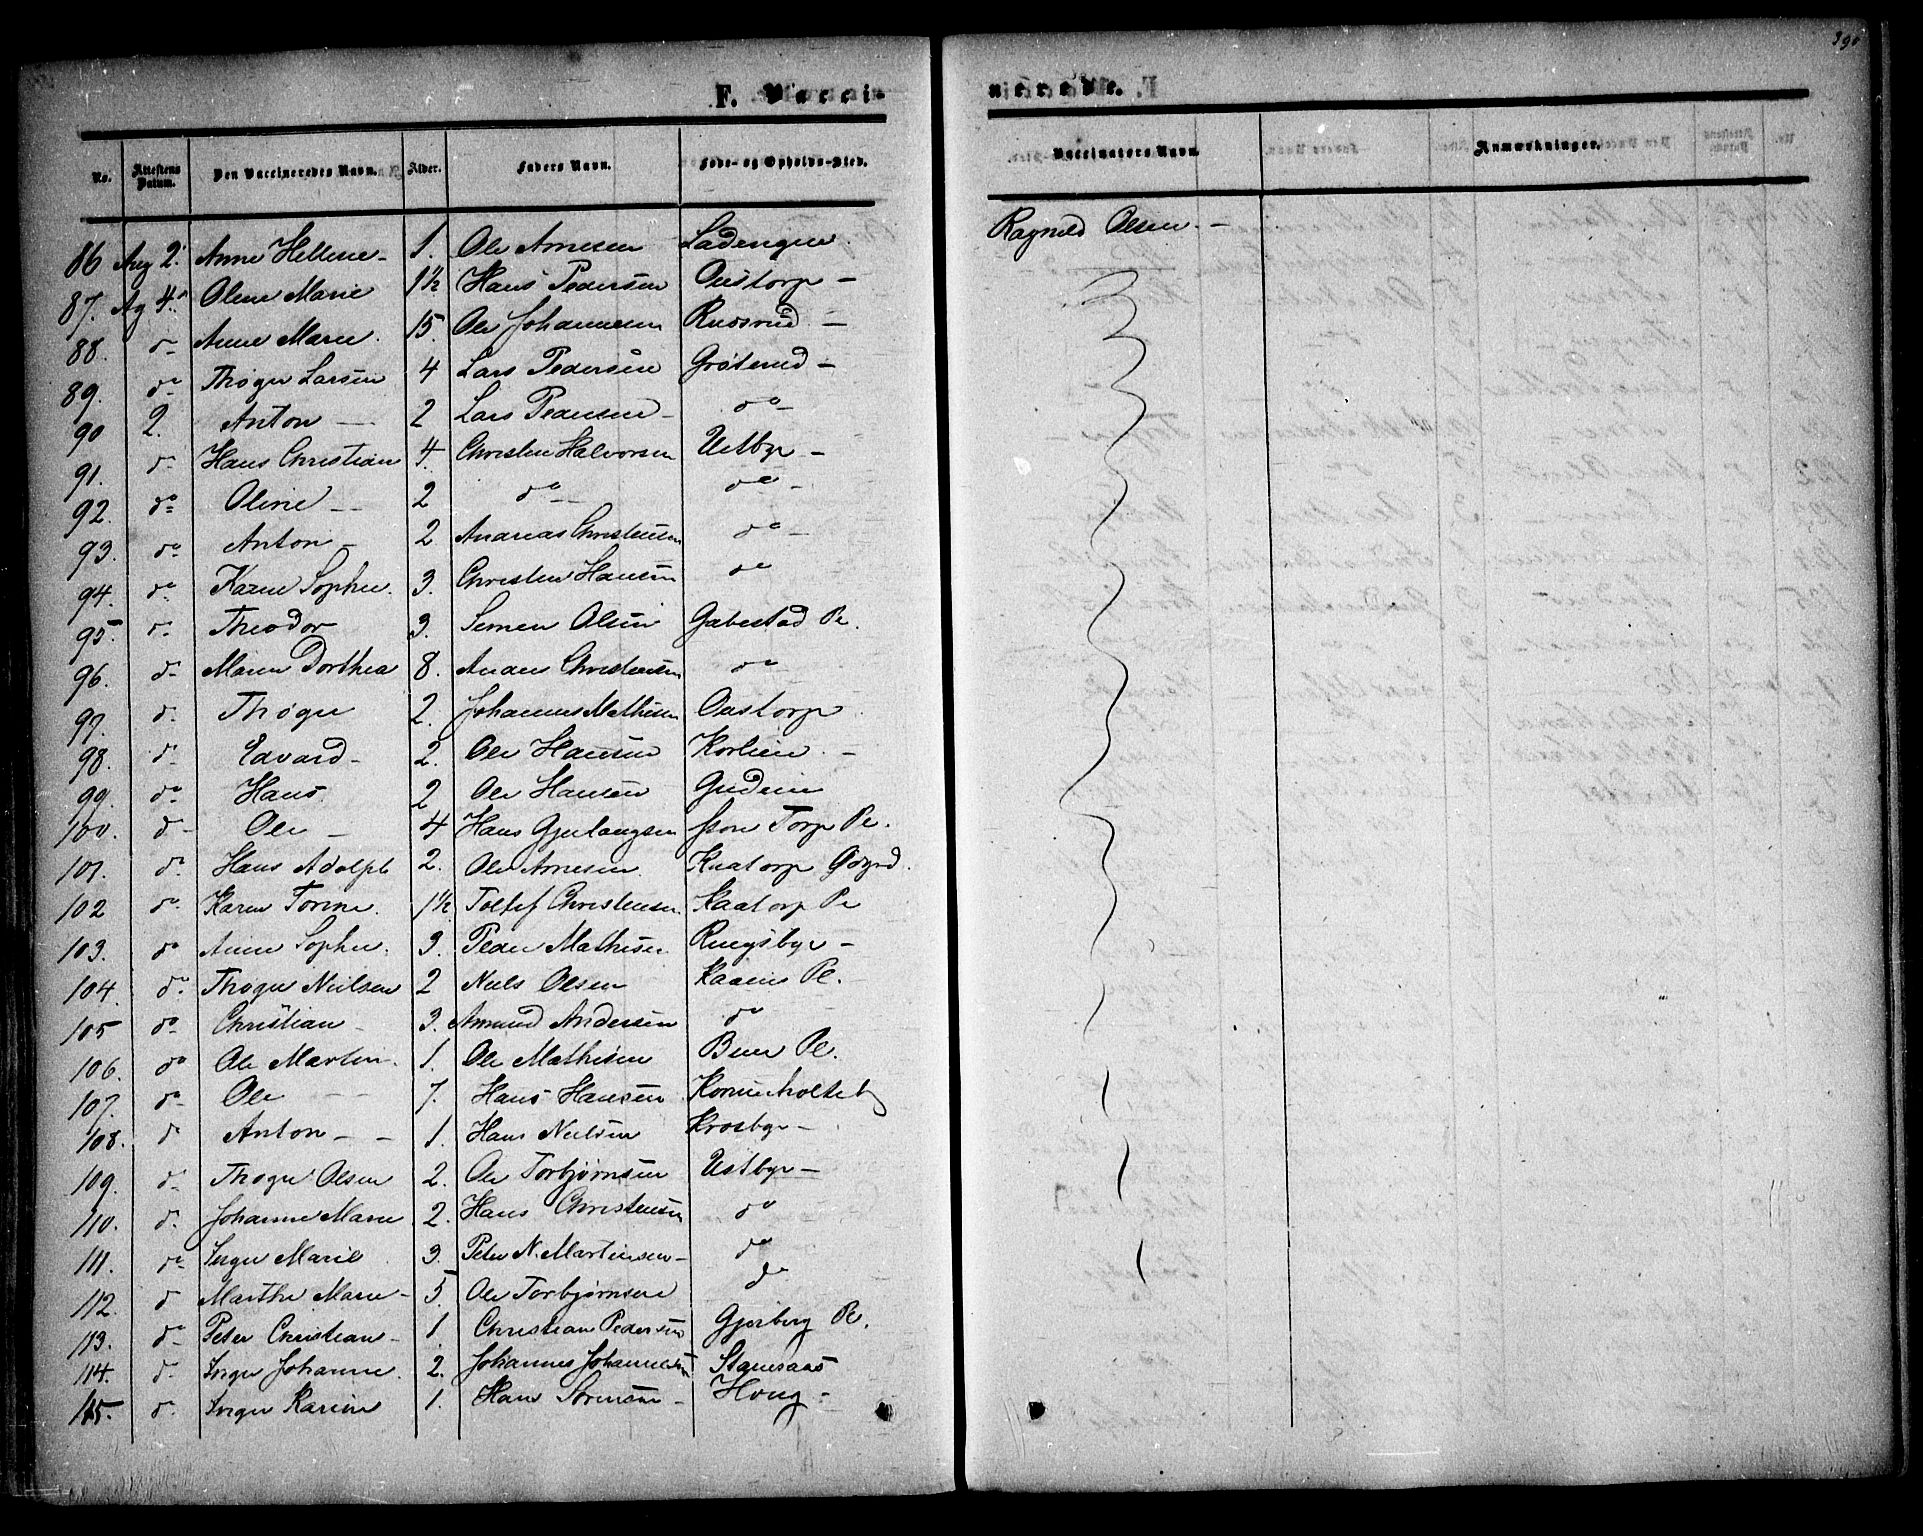 390
F. Vacci-
nerede.
No. Attestens Datum. Den Vaccineredes Navn. Alder. Faders Navn. Føde- og Opholds-Sted. Vaccinators Navn. Anmærkninger.
86 Aug 2. Anne Hellene - 1. Ole Arnesen Ladengen. Ragnild Olsen. -
87. Ag 4. Olene Marie 1½ Hans Pedersen Oustorp -
88. do Anne Marie. 15. Ole Johannesen Rudsrud. -
89. do Thøger Larsen 4 Lars Pedersen Grøterud -
90 2. Anton - 2 Lars Pedersen - do -
91. do Hans Christian 4. Christen Halvorsen Ustbye -
92. do Oline - 2 do - do -
93. do Anton - 2. Andreas Christensen do -
94. do Karen Sophie. 3. Christen Hansen do
95. do Theodor 3. Semen Olsen Gabestad Pe.
96. do Maren Dorthea 8. Anders Christensen do
97. do Thøger 2. Johannes Mathisen Oustorp
98. do Edvard - 2. Ole Hansen Korlien. -
99. do Hans. 2 Ole Hansen Gudim
100. do Ole - 4 Hans Gjerlaugsen Torp Pe.
101. do Hans Adolph 2. Ole Arnesen Kaatorp
102 do Karen Torine. 1½ Tollef Christensen. Kaatorp Pe
103. do Anne Sophie. 3. Peder Mathisen Ringsbye -
104. do Thøger Neilsen 2 Neils Olsen Kaaens Pe.
105 do Christian - 3. Amund Andersen do
106. do Ole Martin. 1. Ole Mathisen Buer Pe.
107. do Ole - - 7. Hans Hansen
108. do Anton - - 1. Hans Neilsen Krosbye -
109. do Thøger Olsen 2. Ole Torbjørnsen Ustbye -
110. do Johanne Marie 2. Hans Christensen do
111. do Inger Marie 3. Peter N. Martinsen - do
112. do Marthe Marie - 5. Ole Torbjørnsen do
113. do Peter Christian - 1 Christian Pedersen Gjerberg Pe.
114. do Inger Johanne. 2. Johannes Johannesen Stamsaas
115. do Inger Karine 1. Hans Sørensen - Houg -